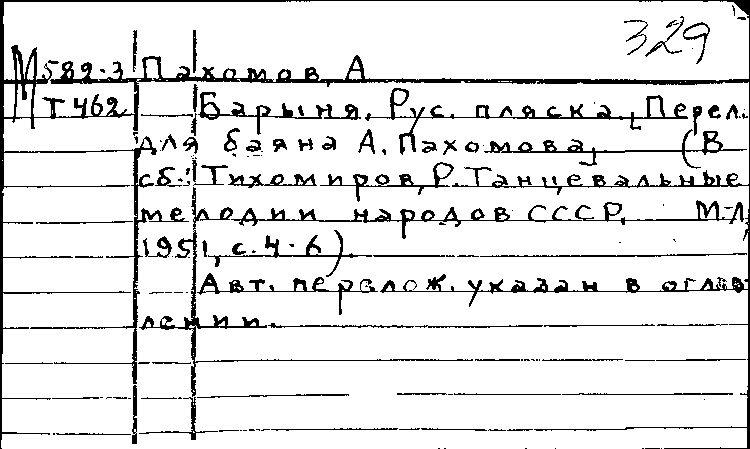 329
М 582-3 Пахомов, А
Т462 Барыня. Рус. пляска. [Перел.
для баяна А. Пахомова] (В
сб.: Тихомиров, Р. Танцевальные
мелодии народов СССР. М-Л,
1951, с. 4-6).
Авт. перелож. указан в оглав-
лении.